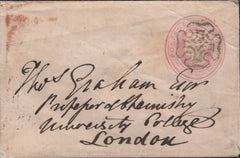 Thos Graham Esqr
Professor of Chemistry
University College
London